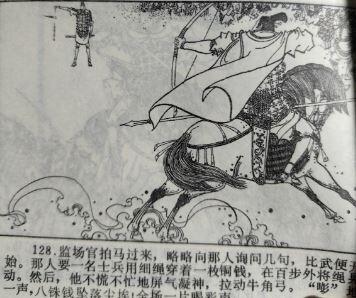 128. 监场官拍马过来，略略向那人询问几句，比武便开
始。那人要一名士兵用细绳穿着一枚铜钱，在百步外将绳
动。然后，他不慌不忙地屏气凝神，拉动牛角弓。“嘭”
一声，八铢钱坠落尘埃！全场一片喝彩声